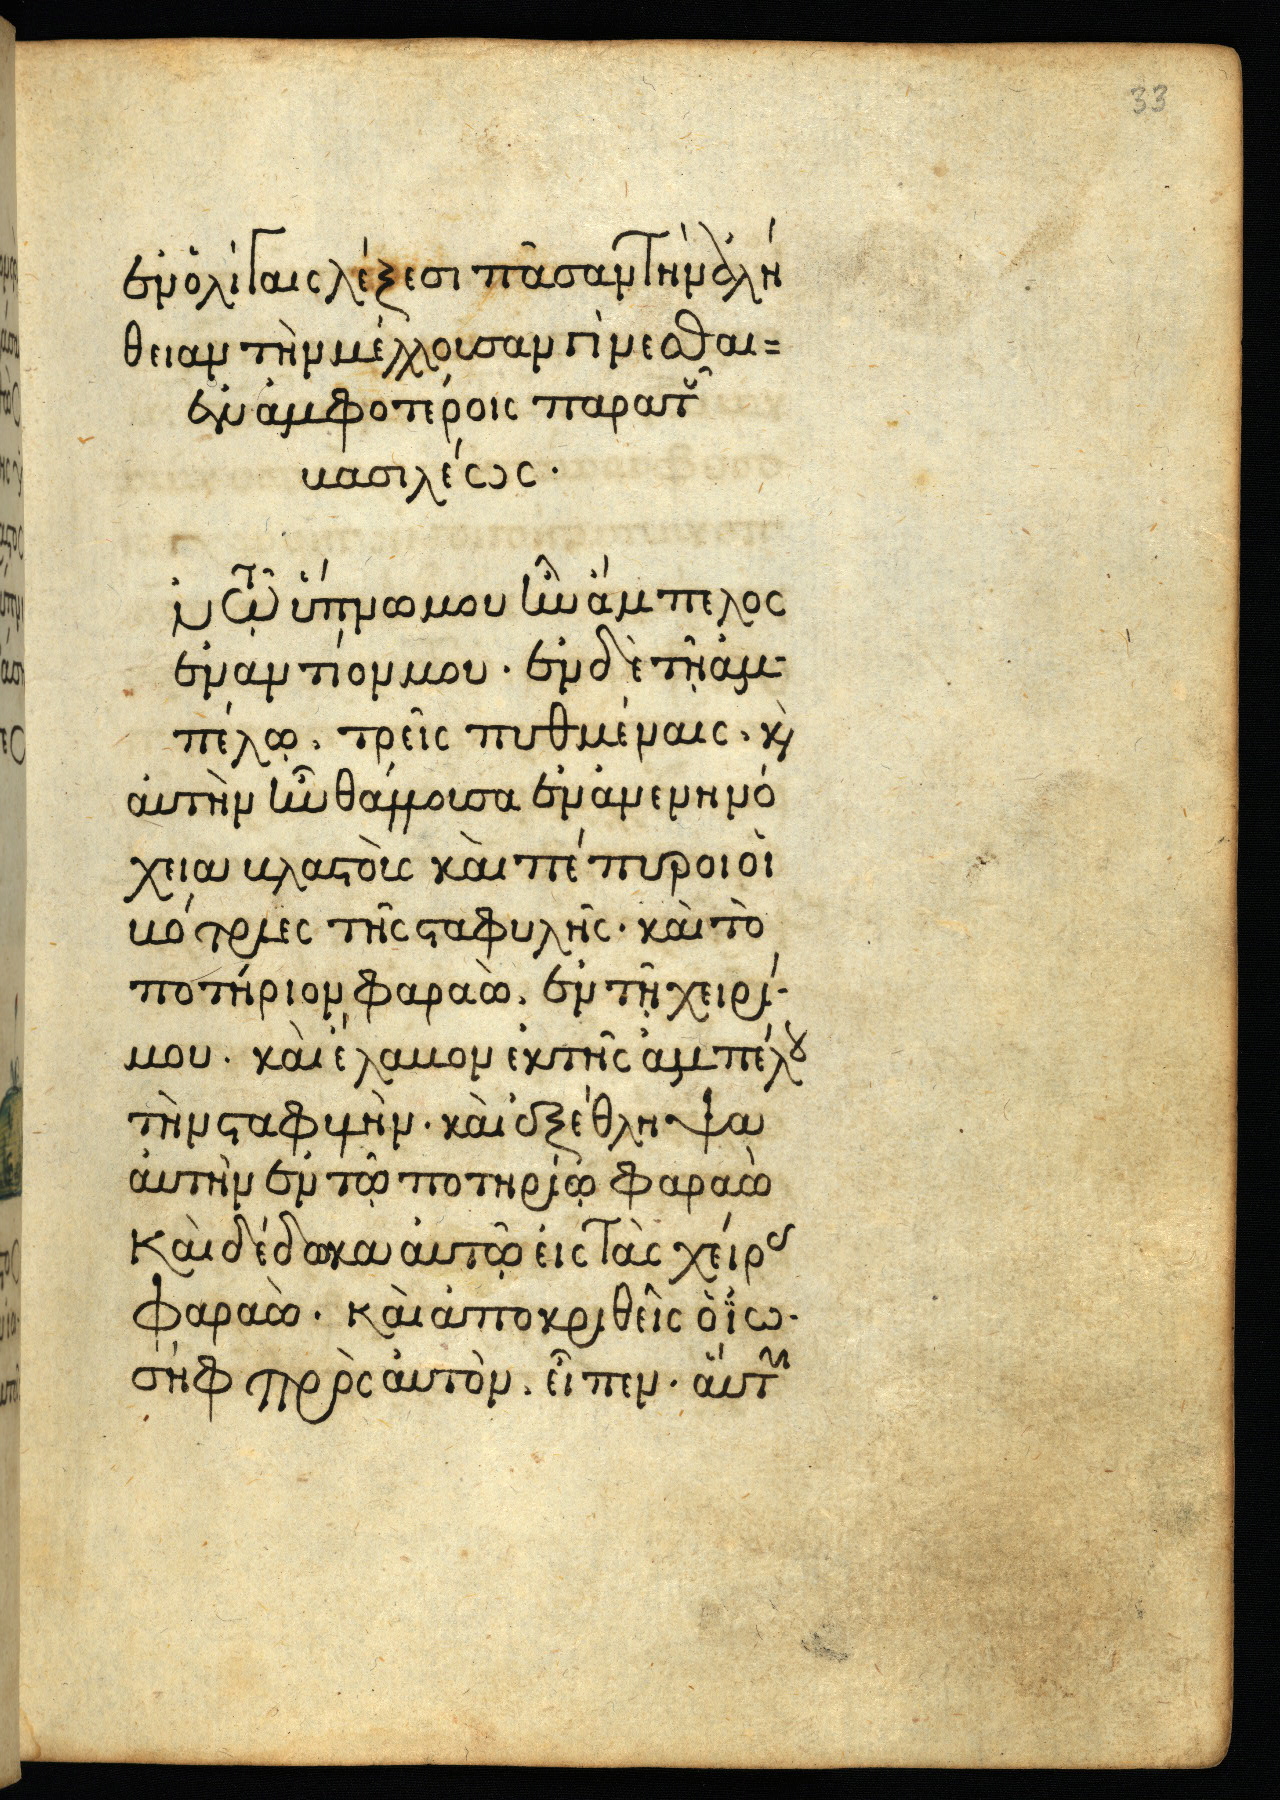 33
ἐν ὀλίγαις λέξεσι πᾶσαν τὴν ἀλή
θειαν τὴν μέλλουσαν γίνεσθαι=
ἐν ἀμφοτέροις παρὰ τοῦ
βασιλέως.
ἐν τῷ ὕπνῳ μου ἦν ἄμπελος
ἐναντίον μου. ἐν δὲ τῇ ἀμ-
πέλῳ. τρεῖς πυθμέναις. κὶ
ἀυτὴν ἦν θάλλουσα ἐνάμενηνό
χεια βλαστοὺς κὰι πέπυροι ὁι
βότρυες τῆς σταφυλῆς. κὰι τὸ
ποτήριον φαραὼ. ἐν τῇ χειρί-
μου. κὰι ἔλαβον ἐκ τῆς ἀμπέλου
τὴν σταφυλὴν. κὰι ἐξέθληψα
ἀυτὴν ἐν τῷ ποτηρίῳ φαραὼ
Κὰι δέδωκα ἀυτῷ ἐις τὰς χείρας
φαραὼ. κὰι ἀποκριθεὶς ὁ ἰω-
σὴφ πρὸς ἀυτὸν. εἶπεν. ἅυτη